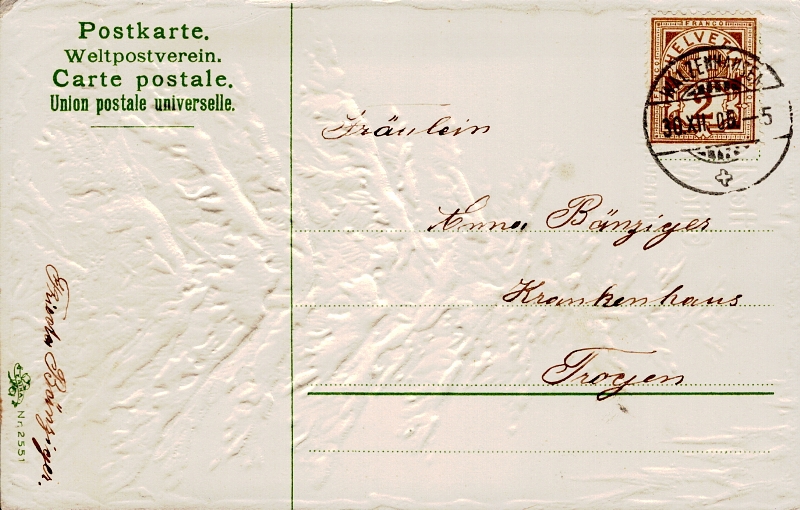 Postkarte.
Weltpostverein.
Carte postale.
Union postale universelle.
FRANCO
HELVETIA
2
30.XII.08.–5
Fräulein
Anna Bänziger
Krankenhaus
Trogen
Bänziger.
Nr. 2551